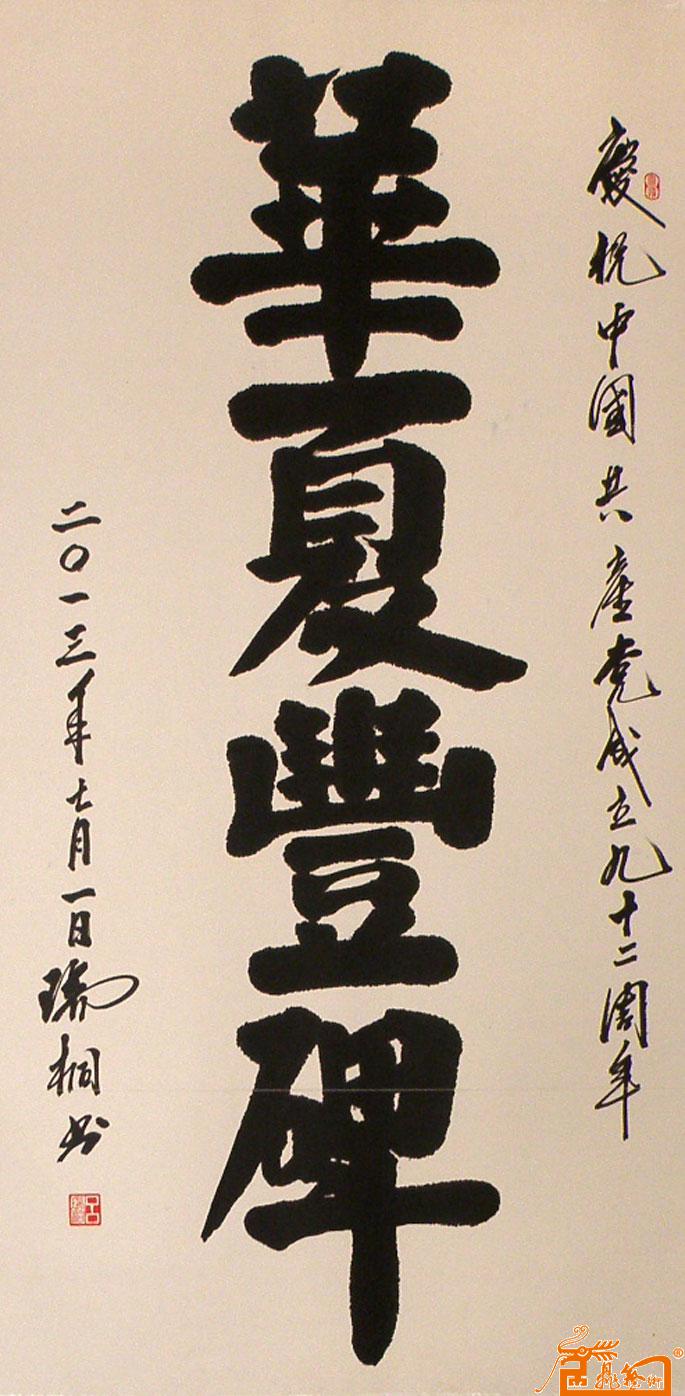 慶祝中國共產党成立九十二周年
華夏豐碑
二〇一三年七月一日瑞桐书